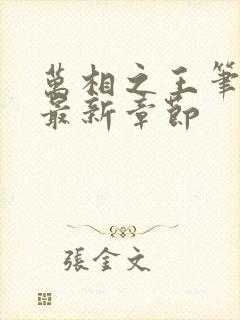 萬相之王筆
最新章節
張金文